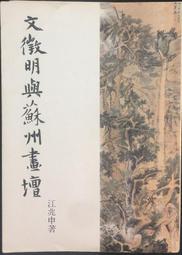 文徵明與蘇州畫壇
江兆申著